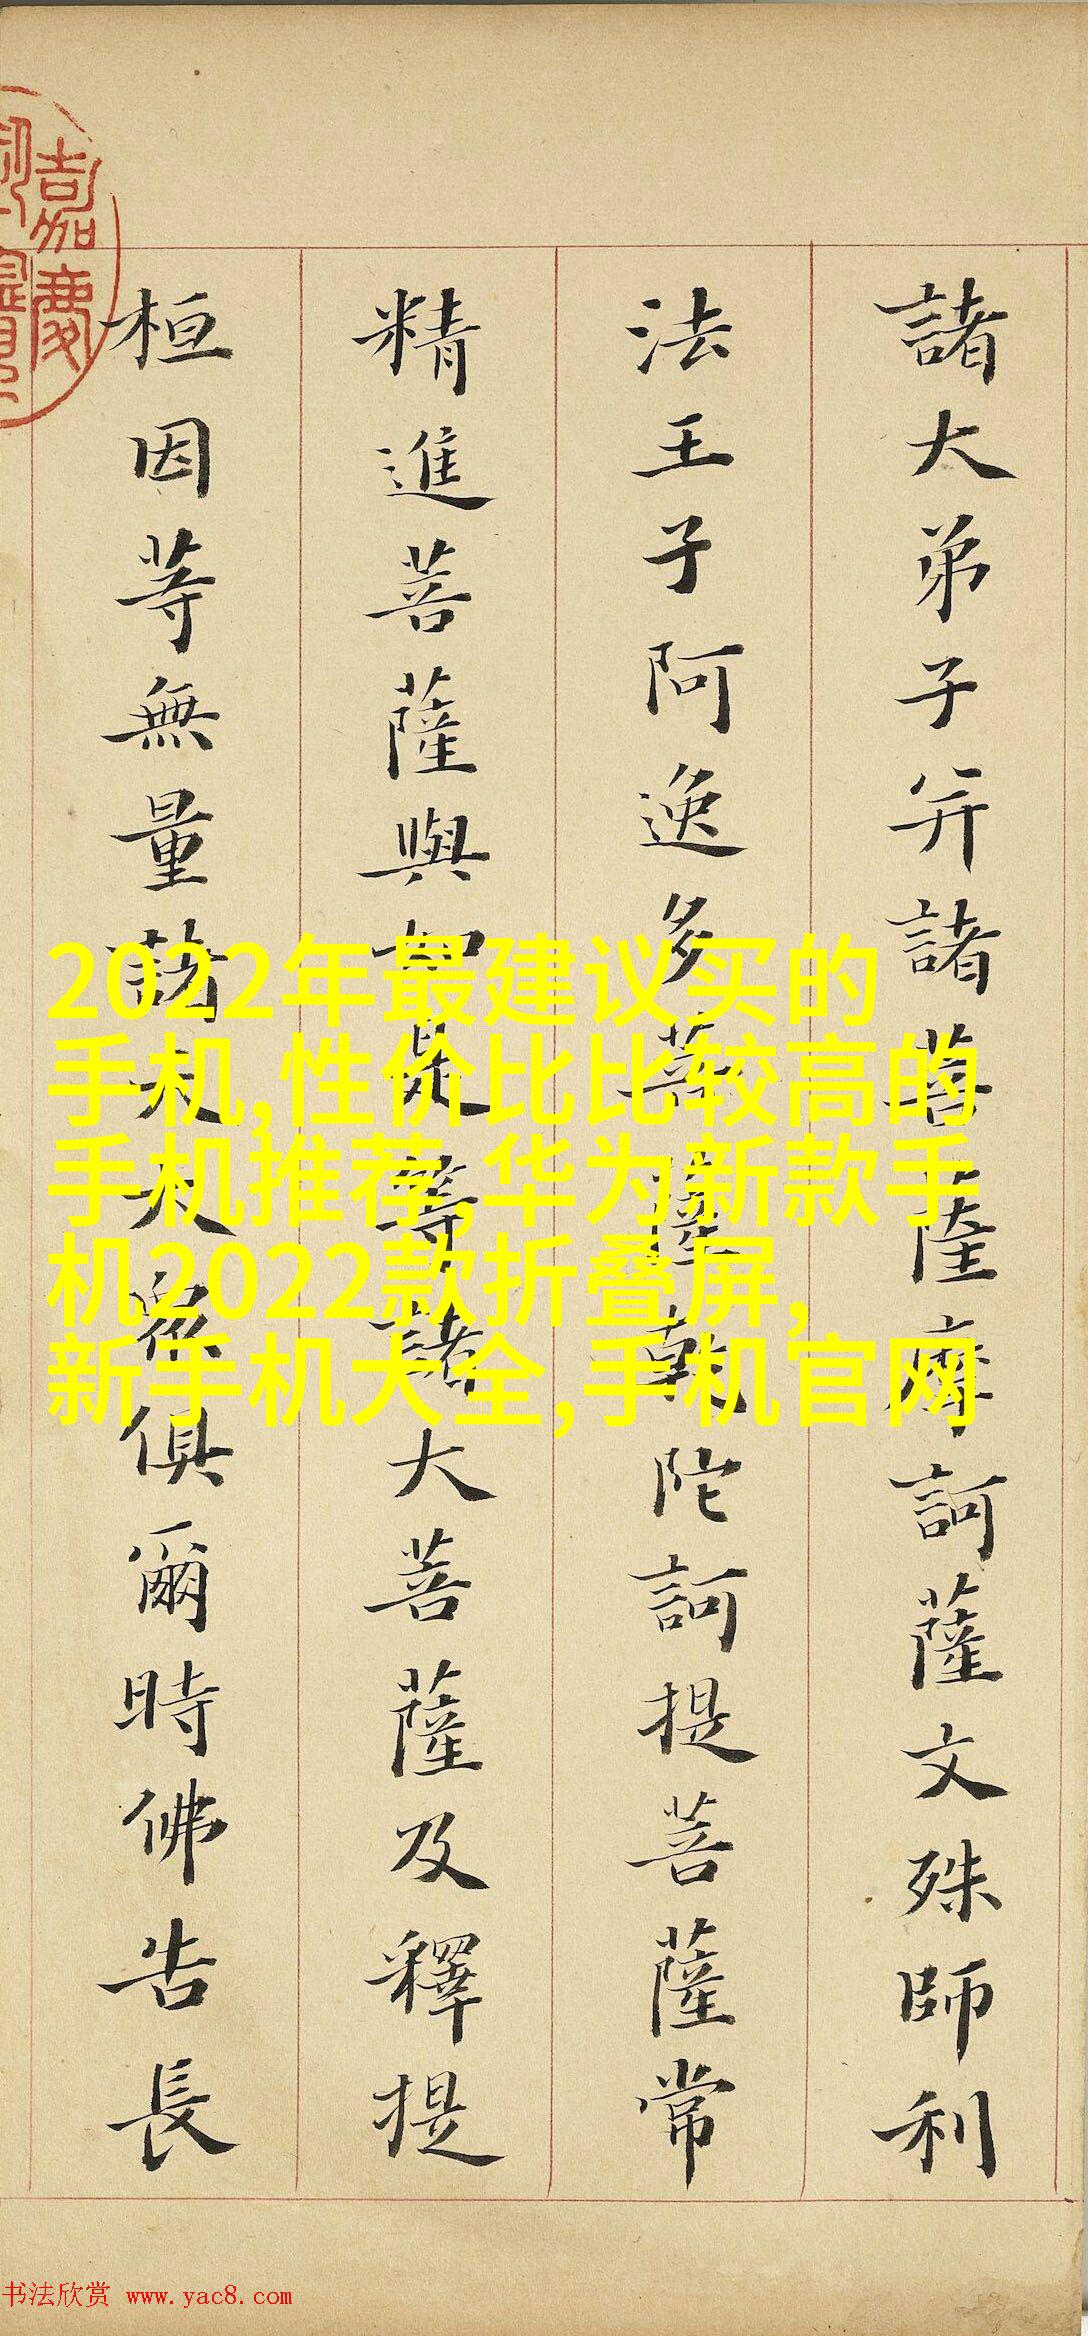 諸大弟子并諸菩薩摩訶薩文殊師利
法王子阿逸多菩薩乾陀訶提菩薩常
精進菩薩與如是等諸大菩薩及釋提
桓因等無量諸天大眾俱爾時佛告長
嘉慶
2022年最建议买的
手机,性价比比较高的
手机推荐,华为新款手
机2022款折叠屏,
新手机大全,手机官网
书法欣赏 www.yac8.com